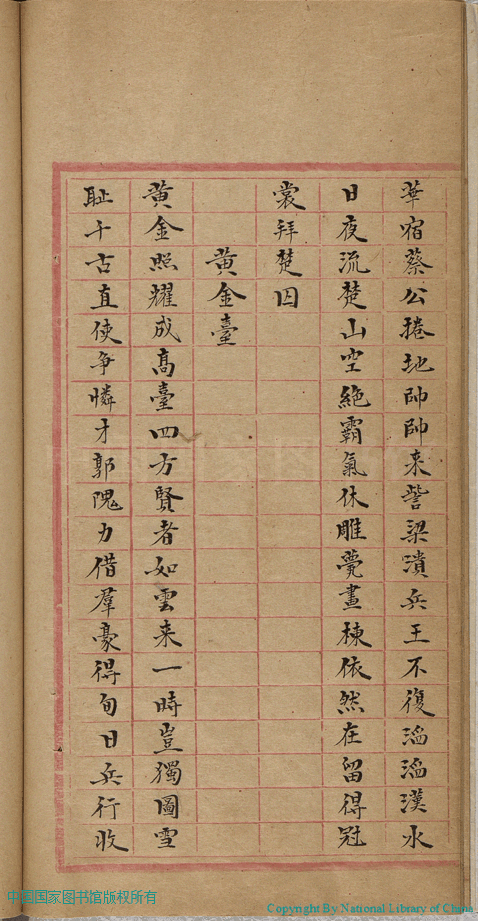 華宿蔡公捲地帥帥来訾梁潰兵王不復滔滔漢水
日夜流楚山空絶霸氣休雕甍畫棟依然在留得冠
裳拜楚囚
黄金臺
黄金照耀成高臺四方賢者如雲来一時豈獨圖雪
耻千古直使争憐才郭隗力借羣豪得旬日兵行收
中国国家图书馆版权所有
Copyright By National Library of China